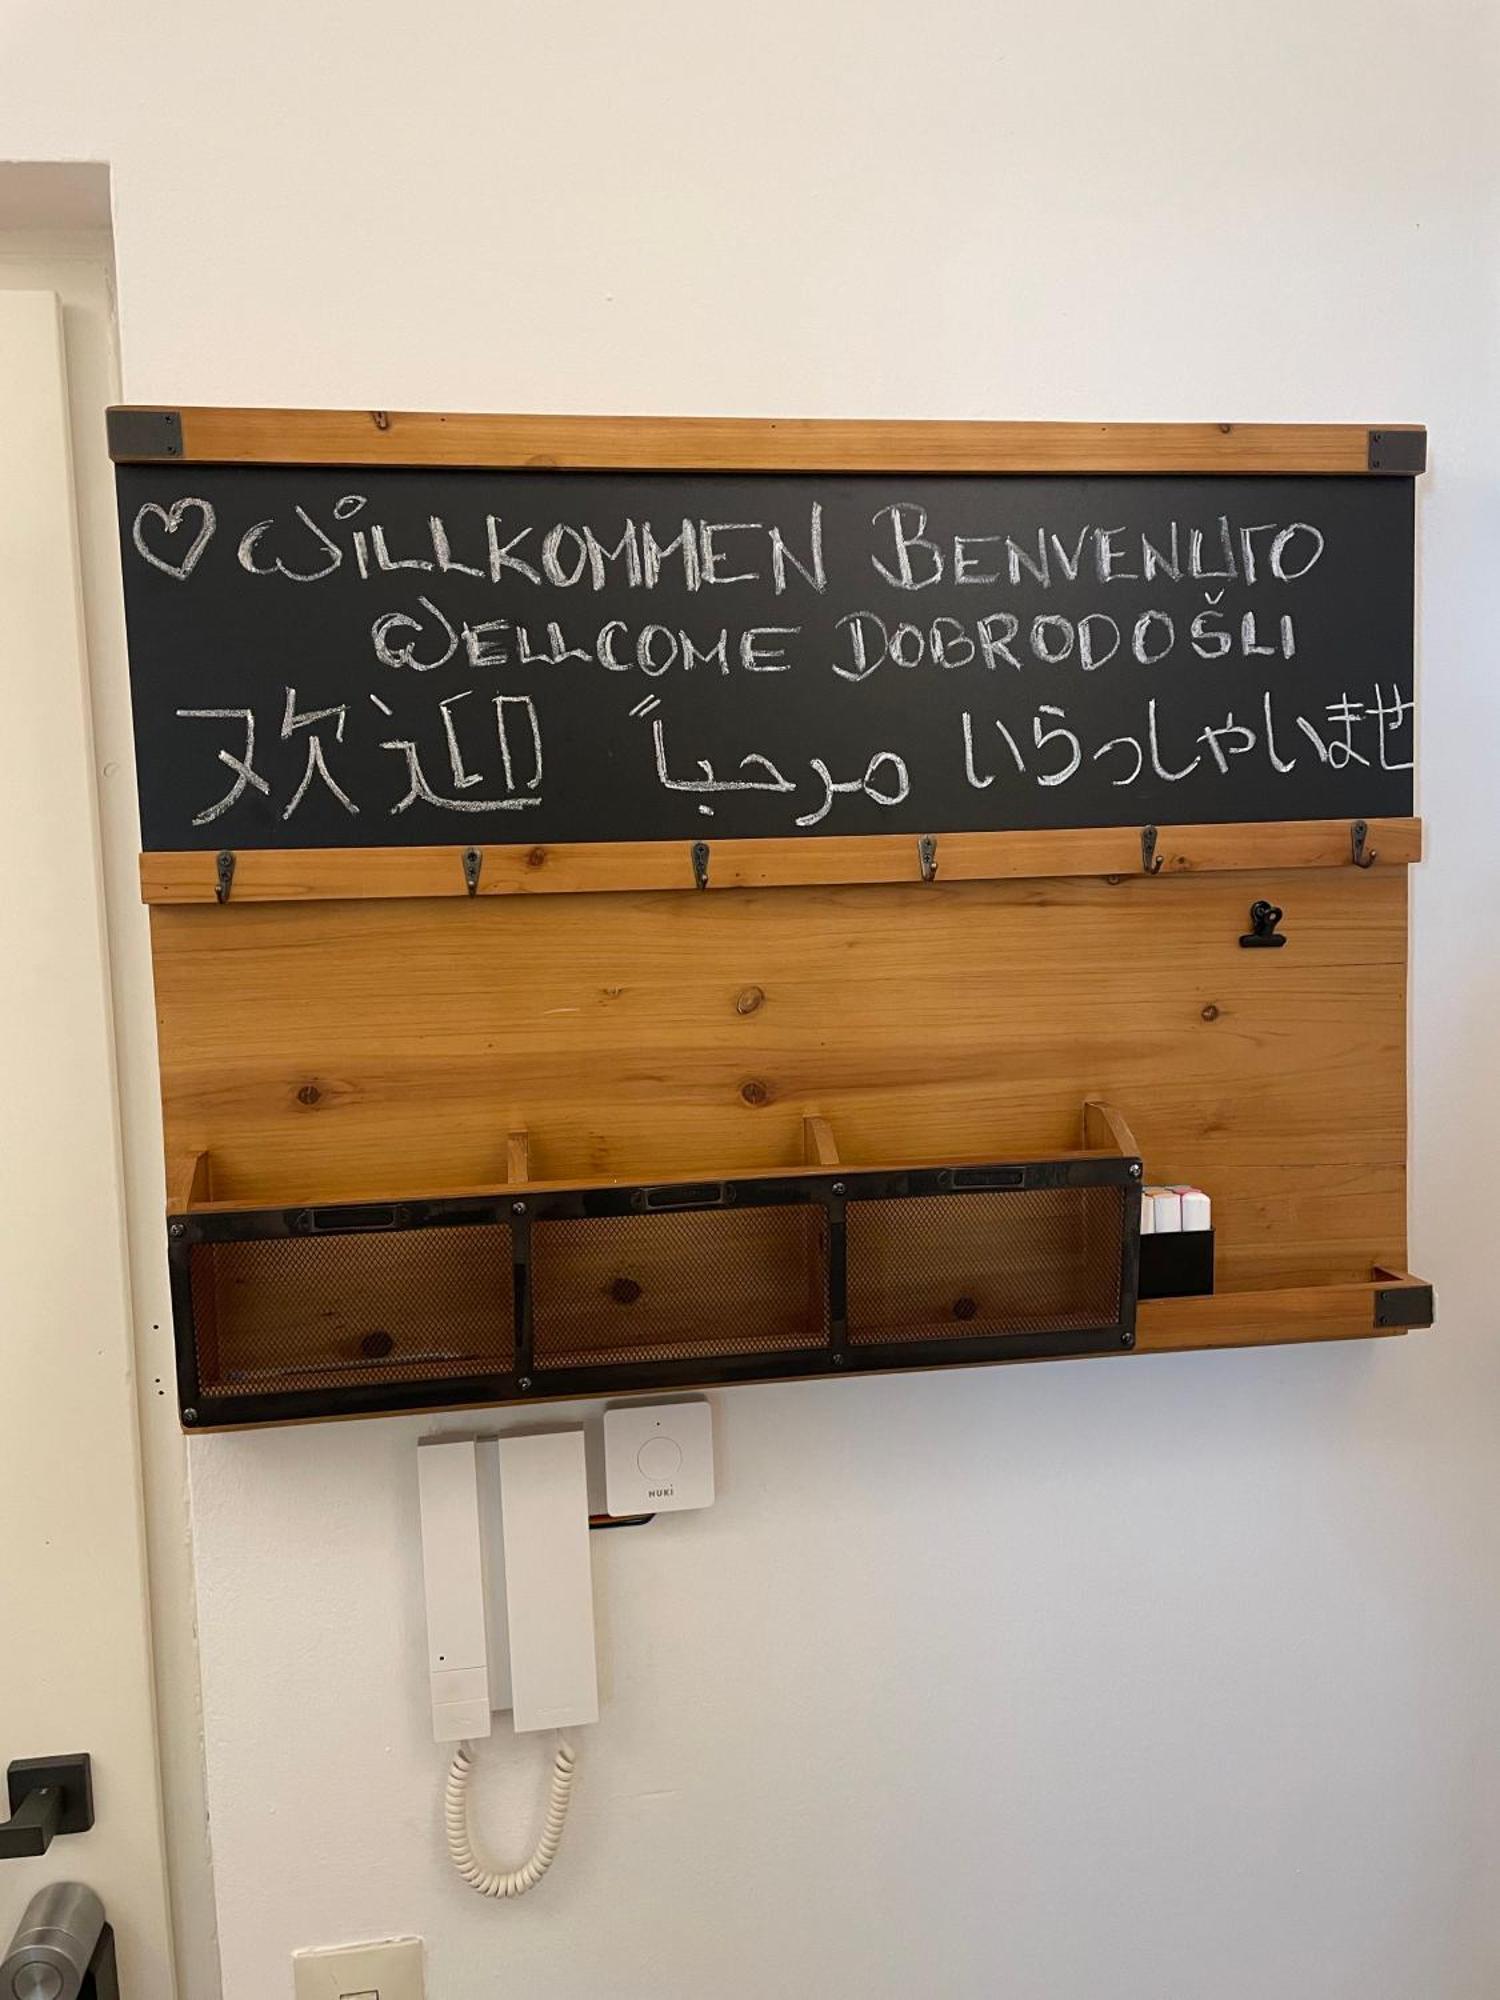 WiLLKOMMEN BENVENUTO
WELLCOME DOBRODOŠLI
欢迎 مرحباً いらっしゃいませ
NUKi